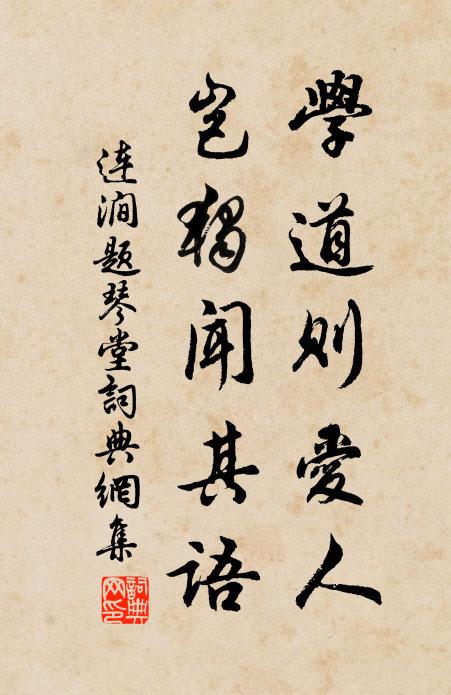 學道則愛人
豈獨聞其語
連澗題琴堂詞典網集
詞典网印